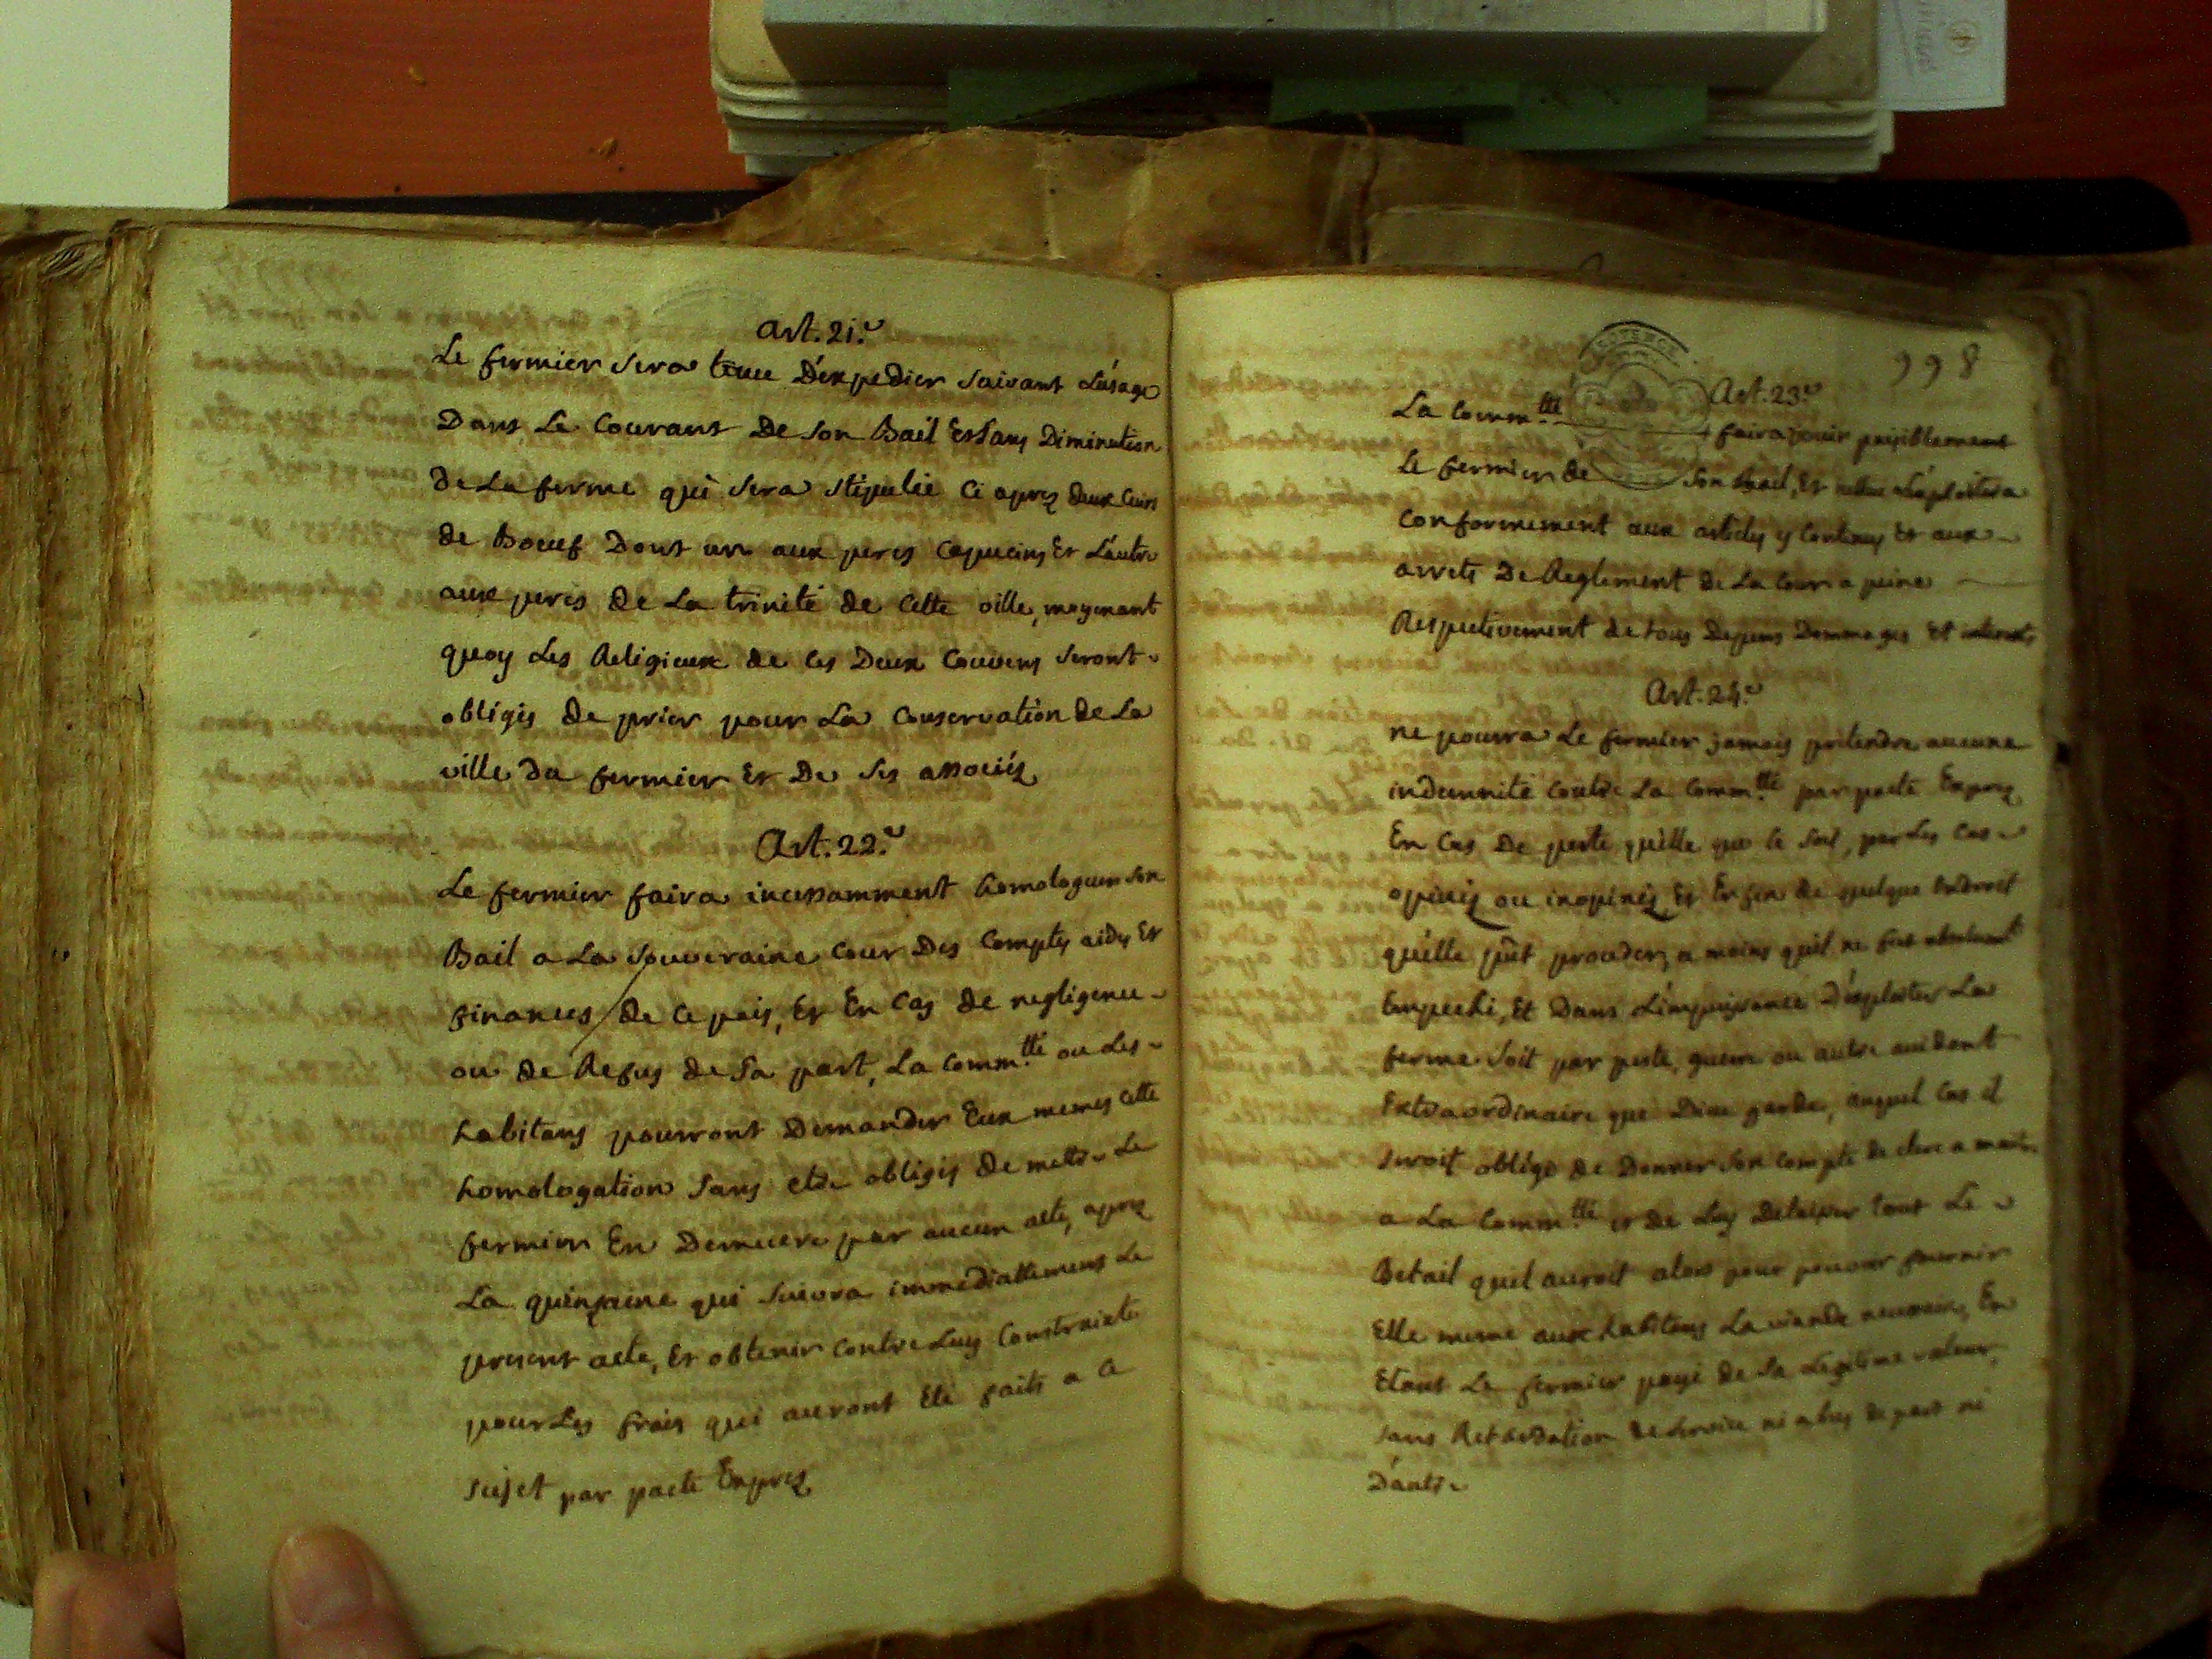 Art. 21.e
Le fermier sera tenu D'expedier suivant L'usage
Dans Le Courant De son Bail Et sans Diminution
de La ferme qui sera stipulée Ci apres deux Cuirs
de Boeuf Dont un aux peres Capucins Et L'autre
aux peres de La trinité de Cette ville, moyenant
quoy Les Religieux de Ces Deux Couvens seront
obligés de prier pour La Conservation de La
ville du fermier Et De ses associés
Art. 22.e
Le fermier faira incessamment homologuer son
Bail a La souveraine Cour Des Comptes aides Et
finances de Ce païs, Et En Cas de negligence
ou de Refus de sa part, La Comm.tté ou Les
habitans pourront Demander Eux memes Cette
homologation sans etre obligés de mettre Le
fermier En Demeure par aucun acte, apres
La quinzaine qui suivra immediattement Le
present acte, Et obtenir contre Luy Constrainte
pour Les frais qui auront Eté faits a Ce
sujet par pacte Exprez
998
Art. 23.e
La Comm.tté faira jouir paisiblement
Le fermier de son Bail, Et
Conformement aux articles y Contenus Et aux
arrets De Reglement de La Cour a peine
Respectivement de tous Depens Dommages Et interets
Art. 24.e
ne pourra Le fermier jamais pretendre aucune
indemnité Contre La Comm.tté par pacte Exprez
En Cas De perte qu'elle que ce soit, par Les Cas
opinés ou inopinés Et Enfin de quelque Endroit
qu'elle pût proceder, a moins qu'il ne fut
Empeché, Et Dans L'impuissance D'exploiter La
ferme soit par peste, guerre ou autre accident
Extraordinaire que Dieu garde, auquel Cas il
seroit obligé de Donner son Compte de clerc a maitre
a La Comm.tté et de Luy Delaisser tout Le
Betail quil auroit alors pour pouvoir fournir
Elle meme aux habitans La viande necessaire, En
Etant Le fermier payé de sa Legitime valeur,
sans Retardation de service ni abus de part ni
D'autre